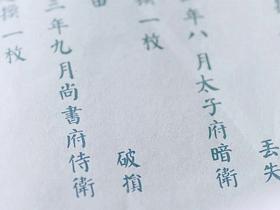 丟失
年八月太子府暗衛
一枚
破損
三年九月尚書府侍衛
一枚